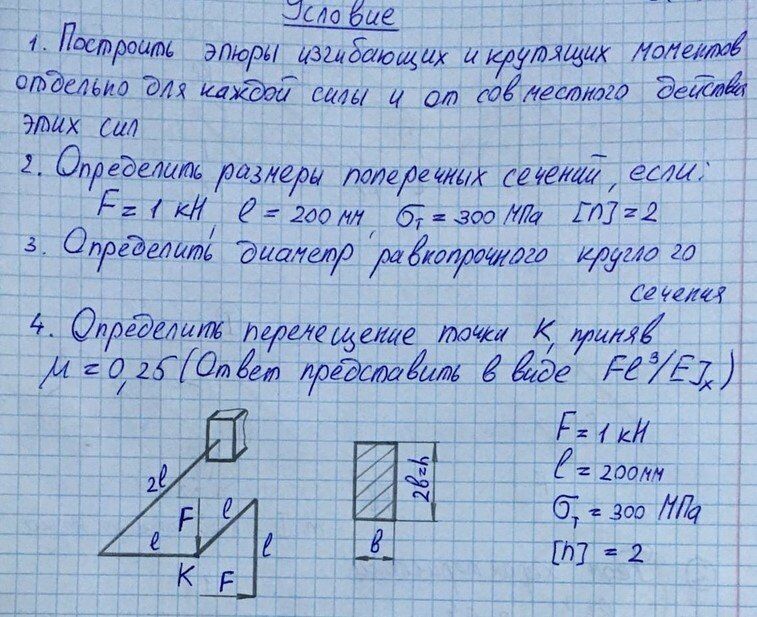 Условие
1. Построить эпюры изгибающих и крутящих моментов
отдельно для каждой силы и от совместного действия
этих сил
2. Определить размеры поперечных сечений, если:
F = 1 кН, l = 200 мм, σт = 300 МПа [n] = 2
3. Определить диаметр равнопрочного круглого
сечения
4. Определить перемещение точки K, приняв
μ = 0,25 (Ответ представить в виде Fl³/EJx)
2l
F
l
l
l
K
F
2b=h
b
F = 1 кН
l = 200 мм
σт = 300 МПа
[n] = 2